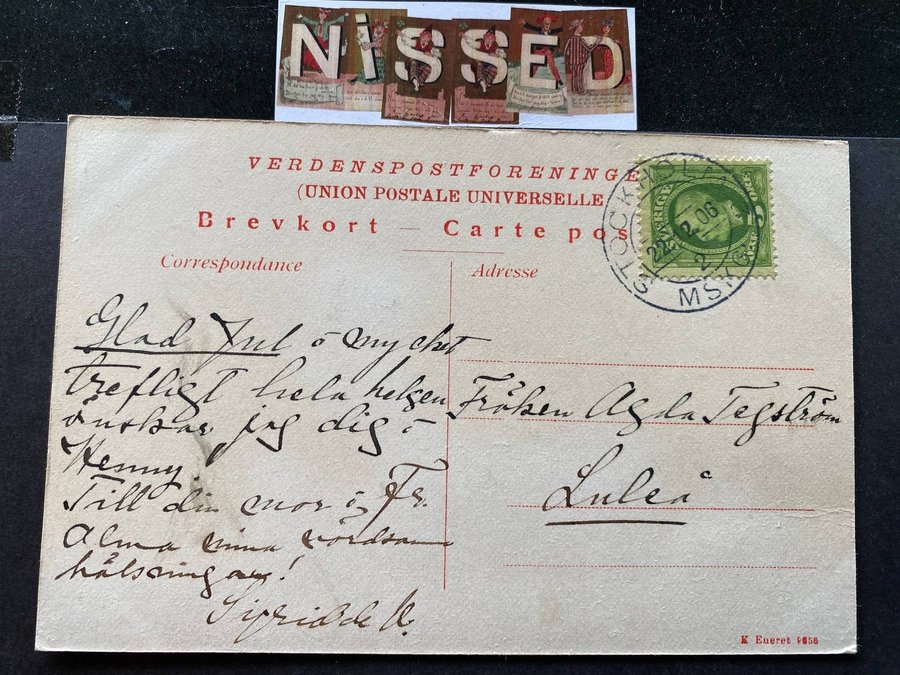 NiSSED
VERDENSPOSTFORENINGE
(UNION POSTALE UNIVERSELLE
Brevkort — Carte pos
Correspondance
Glad Jul o mycket
trefligt hela helgen
önskar jag dig o
Henny.
Till din mor o Fr.
Alma mina vördsam
hälsningar!
Sigrid de V.
Adresse
STOCKHOLM
22.12.06
2
MSK
SVERIGE
Fröken Agda Tegström
Luleå
K Eneret